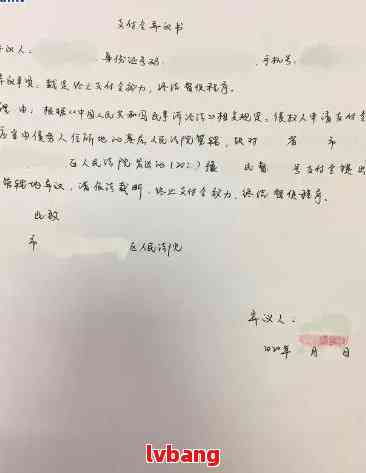 支付令异议书
异议人: 身份证号码 手机号:
异议事项:裁定终止支付令效力,终结督促程序。
理由:根据《中国人民共和国民事诉讼法》相关规定,债权人申请支付令
应当由债务人住所地的基层人民法院管辖,现对 省 市
区人民法院发出的(2020) 民督 号支付令提出
管辖地异议,请依法裁断,终止支付令效力,终结督促程序。
此致
市 区人民法院
异议人:
2020年 月 日
lvbang